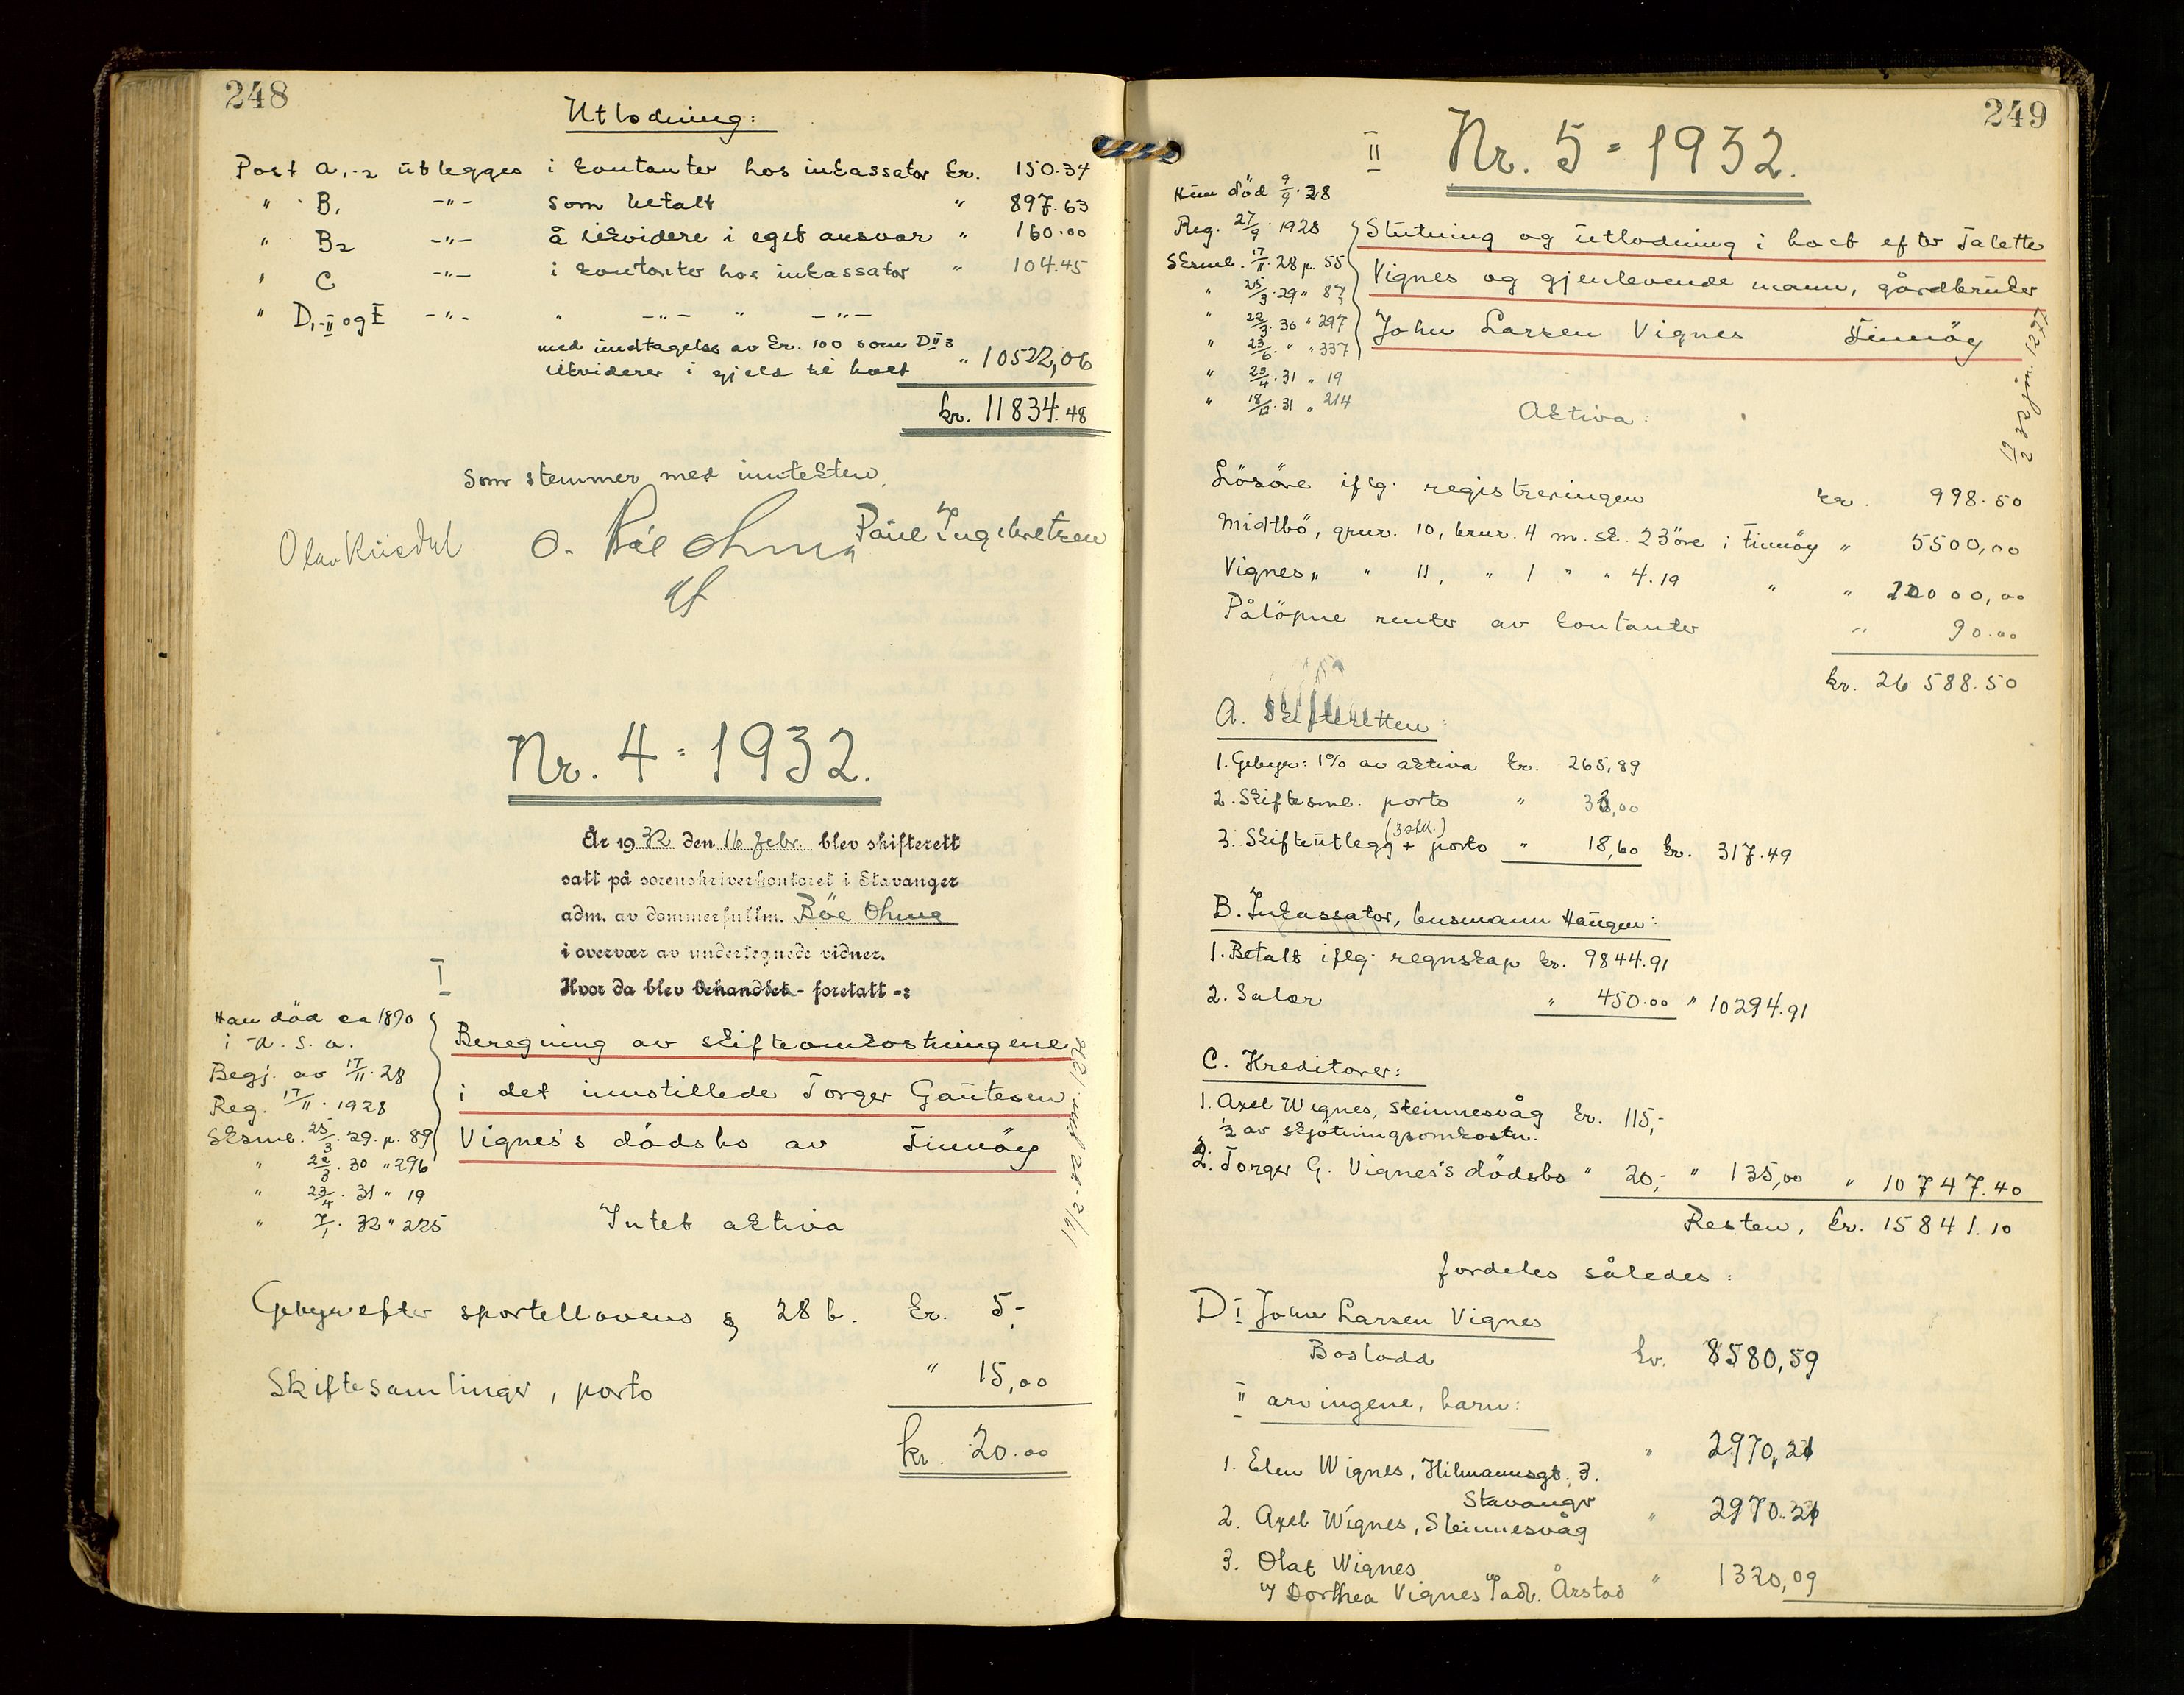 248
Utlodning:
Post A, 1-2 utlegges i kontanter hos inkassator kr. 150.34
" B1 -"- som betalt " 897.63
" B2 -"- å likvidere i eget ansvar " 160.00
" C -"- i kontanter hos inkassator " 104.45
" D, I-II og E -"- " -"- " -"-
med undtagelse av kr. 100 som D II 3
likviderer i gjeld til boet " 10522,06
kr. 11834.48
Som stemmer med inntekten.
O. Böe Ohma
Paul Ingebretsen
Nr. 4 = 1932.
År 1932 den 16 febr. blev skifterett
satt på sorenskriverkontoret i Stavanger
adm. av dommerfullm. Böe Ohma
i overvær av undertegnede vidner.
Hvor da blev behandlet - foretatt -:
I
Han död ca 1890
i U.S.A.
Begj. av 17/11.28
Reg. 17/11. 1928
Sksml. 25/3.29. p. 89
" 22/3.30 " 296
" 23/4.31 " 19
" 7/1.32 " 225
Beregning av skifteomkostningene
i det innstillede Torger Gautesen
Vignes's dödsbo av Finnöy
19/2-32 jnr. 1276
Intet aktiva
Gebyr efter sportellovens § 28 b. kr. 5,-
Skiftesamlinger, porto " 15,00
kr. 20.00
249
II
Nr. 5 = 1932.
Hun död 9/9.28
Reg. 27/9. 1928
Sksml. 17/11.28 p. 55
" 25/3.29 " 87
" 22/3.30 " 297
" 23/6. " " 337
" 23/4.31 " 19
" 18/12.31 " 214
Slutning og utlodning i boet efter Talette
Vignes og gjenlevende mann, gårdbruker
John Larsen Vignes Finnöy
19/2 32 jnr. 1277
Aktiva:
Lösöre iflg. registreringen kr. 998.50
Midtbö, gnr. 10, bnr. 4 m. sk. 23 öre i Finnöy " 5500,00
Vignes, " 11, " 1 " " 4.19 " " 20000,00
Pålöpne renter av kontanter " 90.00
kr. 26588.50
A. Skifteretten:
1. Gebyr: 1% av aktiva kr. 265,89
2. Skiftesml. porto " 33,00
3. Skifteutlegg + porto (3 stk.) " 18,60 kr. 317.49
B. Inkassator, lensmann Haugen:
1. Betalt iflg. regnskap kr. 9844.91
2. Salær " 450.00 " 10294.91
C. Kreditorer:
1. Axel Wignes, Steinnesvåg kr. 115,-
1/2 av skjötningsomkostn.
2. Torger G. Vignes's dödsbo " 20,- " 135,00 " 10747.40
Resten, kr. 15841.10
fordeles således:
D I John Larsen Vignes
Boslodd kr. 8580,59
II arvingene, barn:
1. Elen Wignes, Hilmannsgt. 3. " 2970,21
Stavanger
2. Axel Wignes, Steinnesvåg " 2970.21
3. Olaf Wignes
v/ Dorthea Vignes adr. Årstad " 1320,09